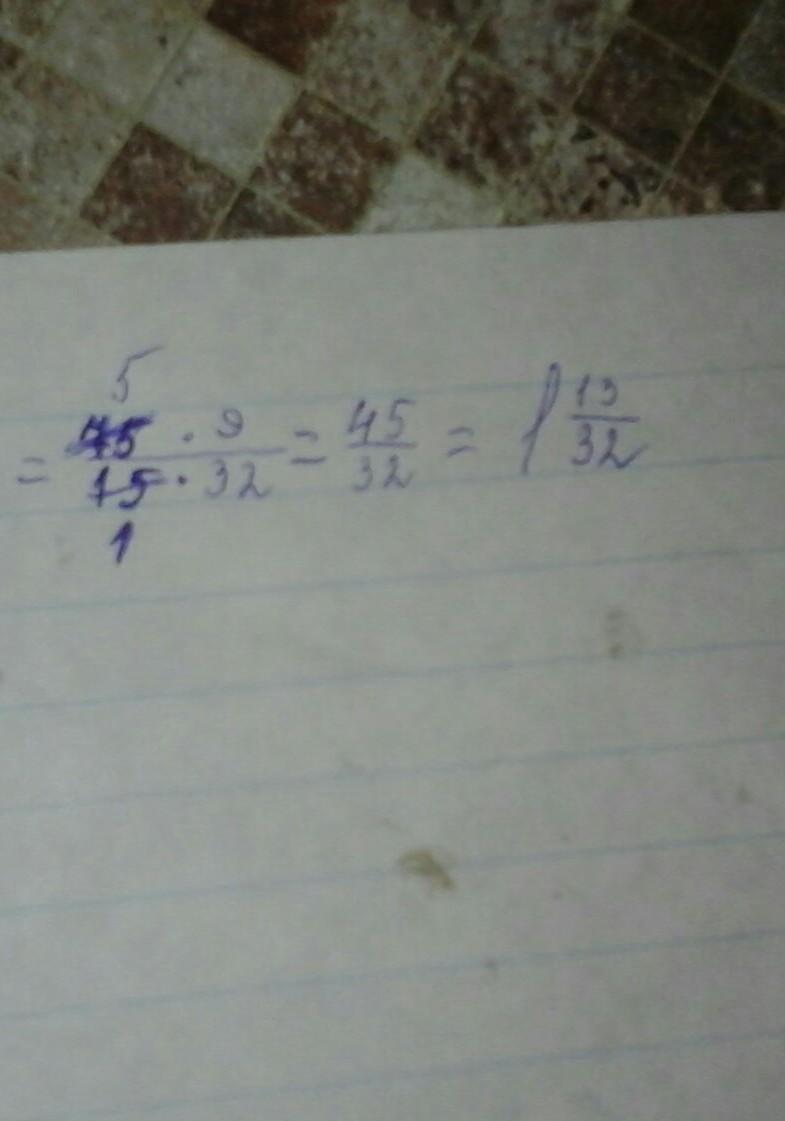 5
= 75 · 9 / 15 · 32 = 45/32 = 1 13/32
1